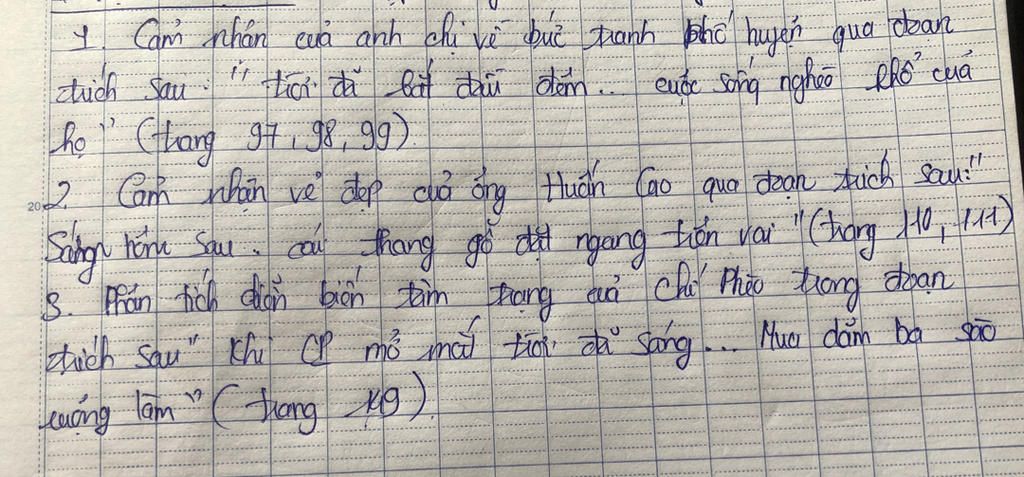 1. Cảm nhận của anh chị về bức tranh phố huyện qua đoạn
trích sau: " trời đã bắt đầu đêm... cuộc sống nghèo khổ của
họ" (trang 97, 98, 99).
20 2. Cảm nhận vẻ đẹp của ông Huấn Cao qua đoạn trích sau: "
Sáng hôm sau. cái thang gỗ đặt ngang trên vai" (trang 110, 111)
3. Phân tích diễn biến tâm trạng của Chí Phèo trong đoạn
trích sau " khi CP mở mắt trời đã sáng... Hua dăm ba sào
vườn làm" ( trang 149).